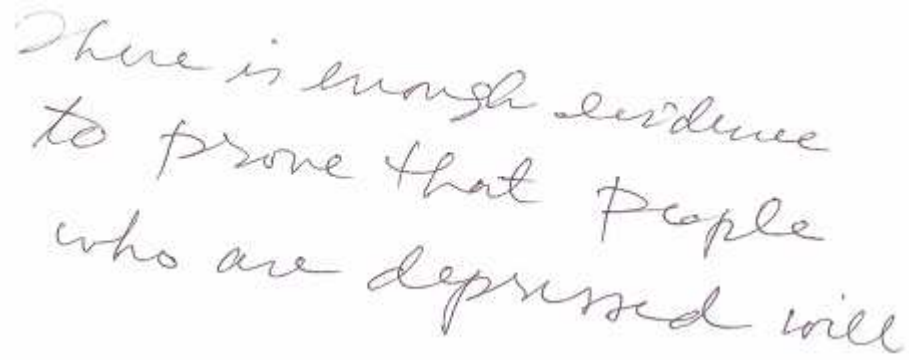 There is enough evidence
to prove that people
who are depressed will